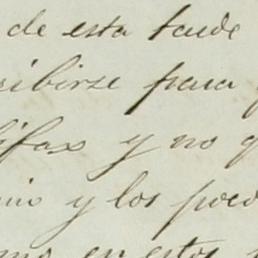 de esta tarde
ibirse para
lifax y no q
io y los pod
mo en estos